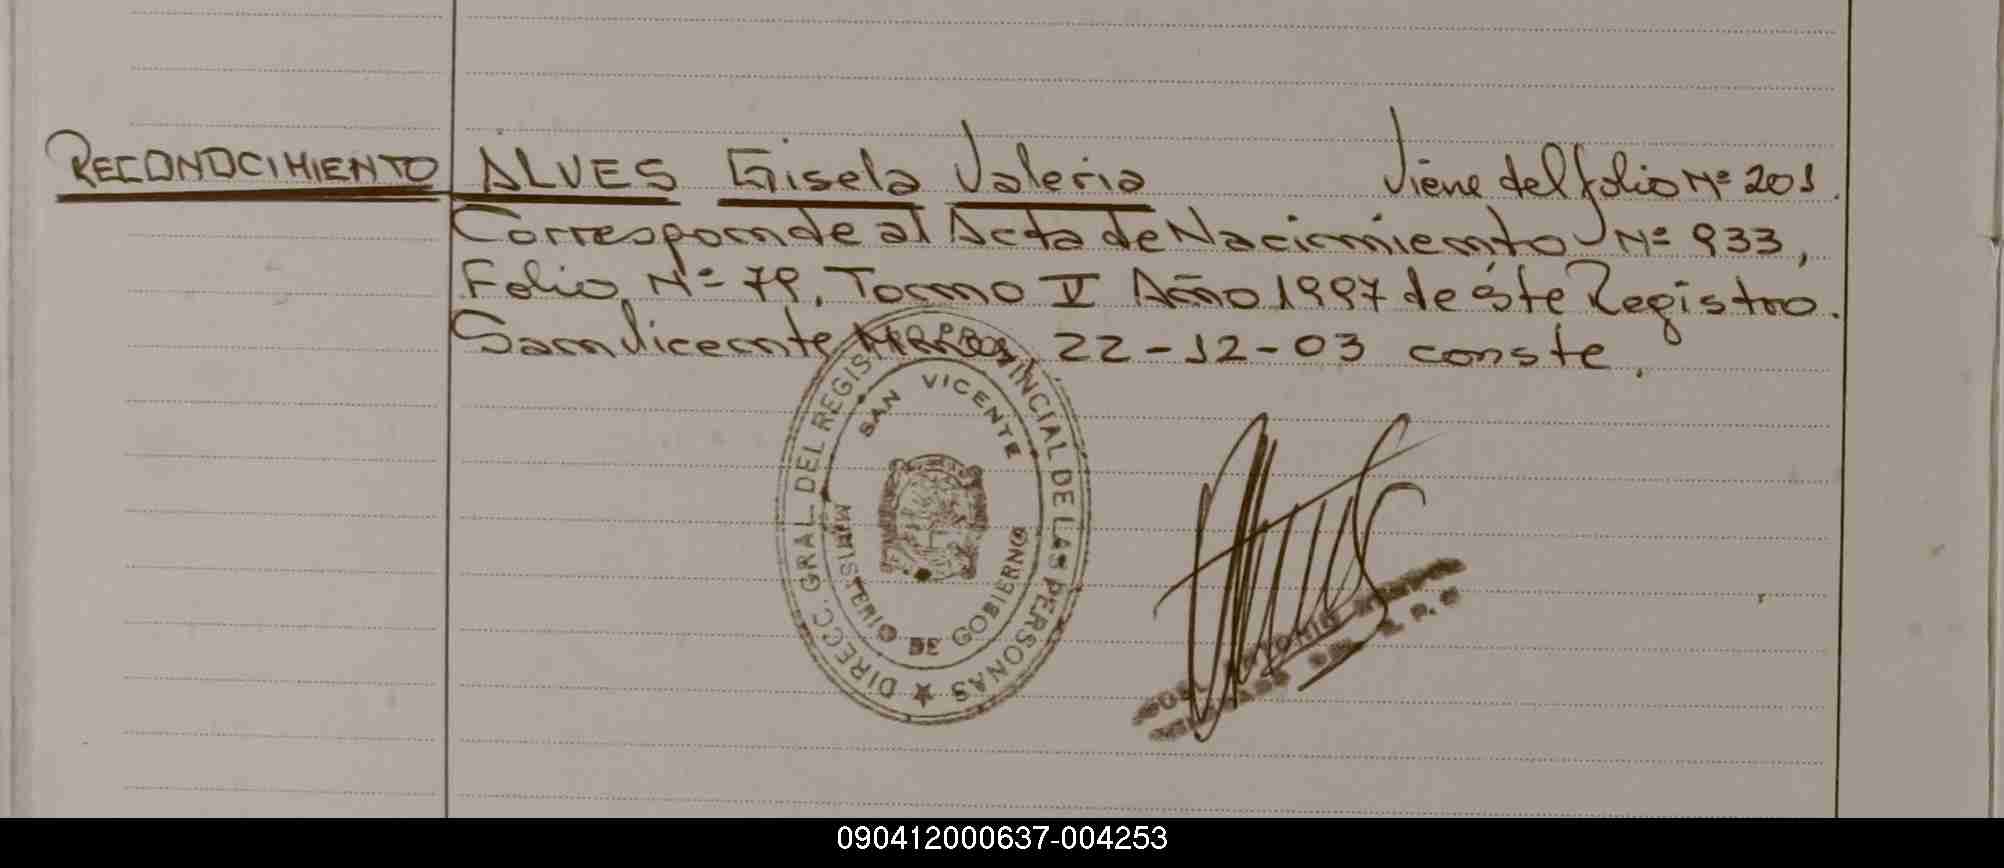 RECONOCIMIENTO ALVES Gisela Valeria Viene del folio Nº 201.
Corresponde al Acta de Nacimiento Nº 933,
Folio Nº 79, Tomo V Año 1997 de éste Registro.
San Vicente, 22-12-03 conste.
DIRECC. GRAL. DEL REGIST PROVINCIAL DE LAS PERSONAS
SAN VICENTE
MINISTERIO DE GOBIERNO
ANTONIO
090412000637-004253